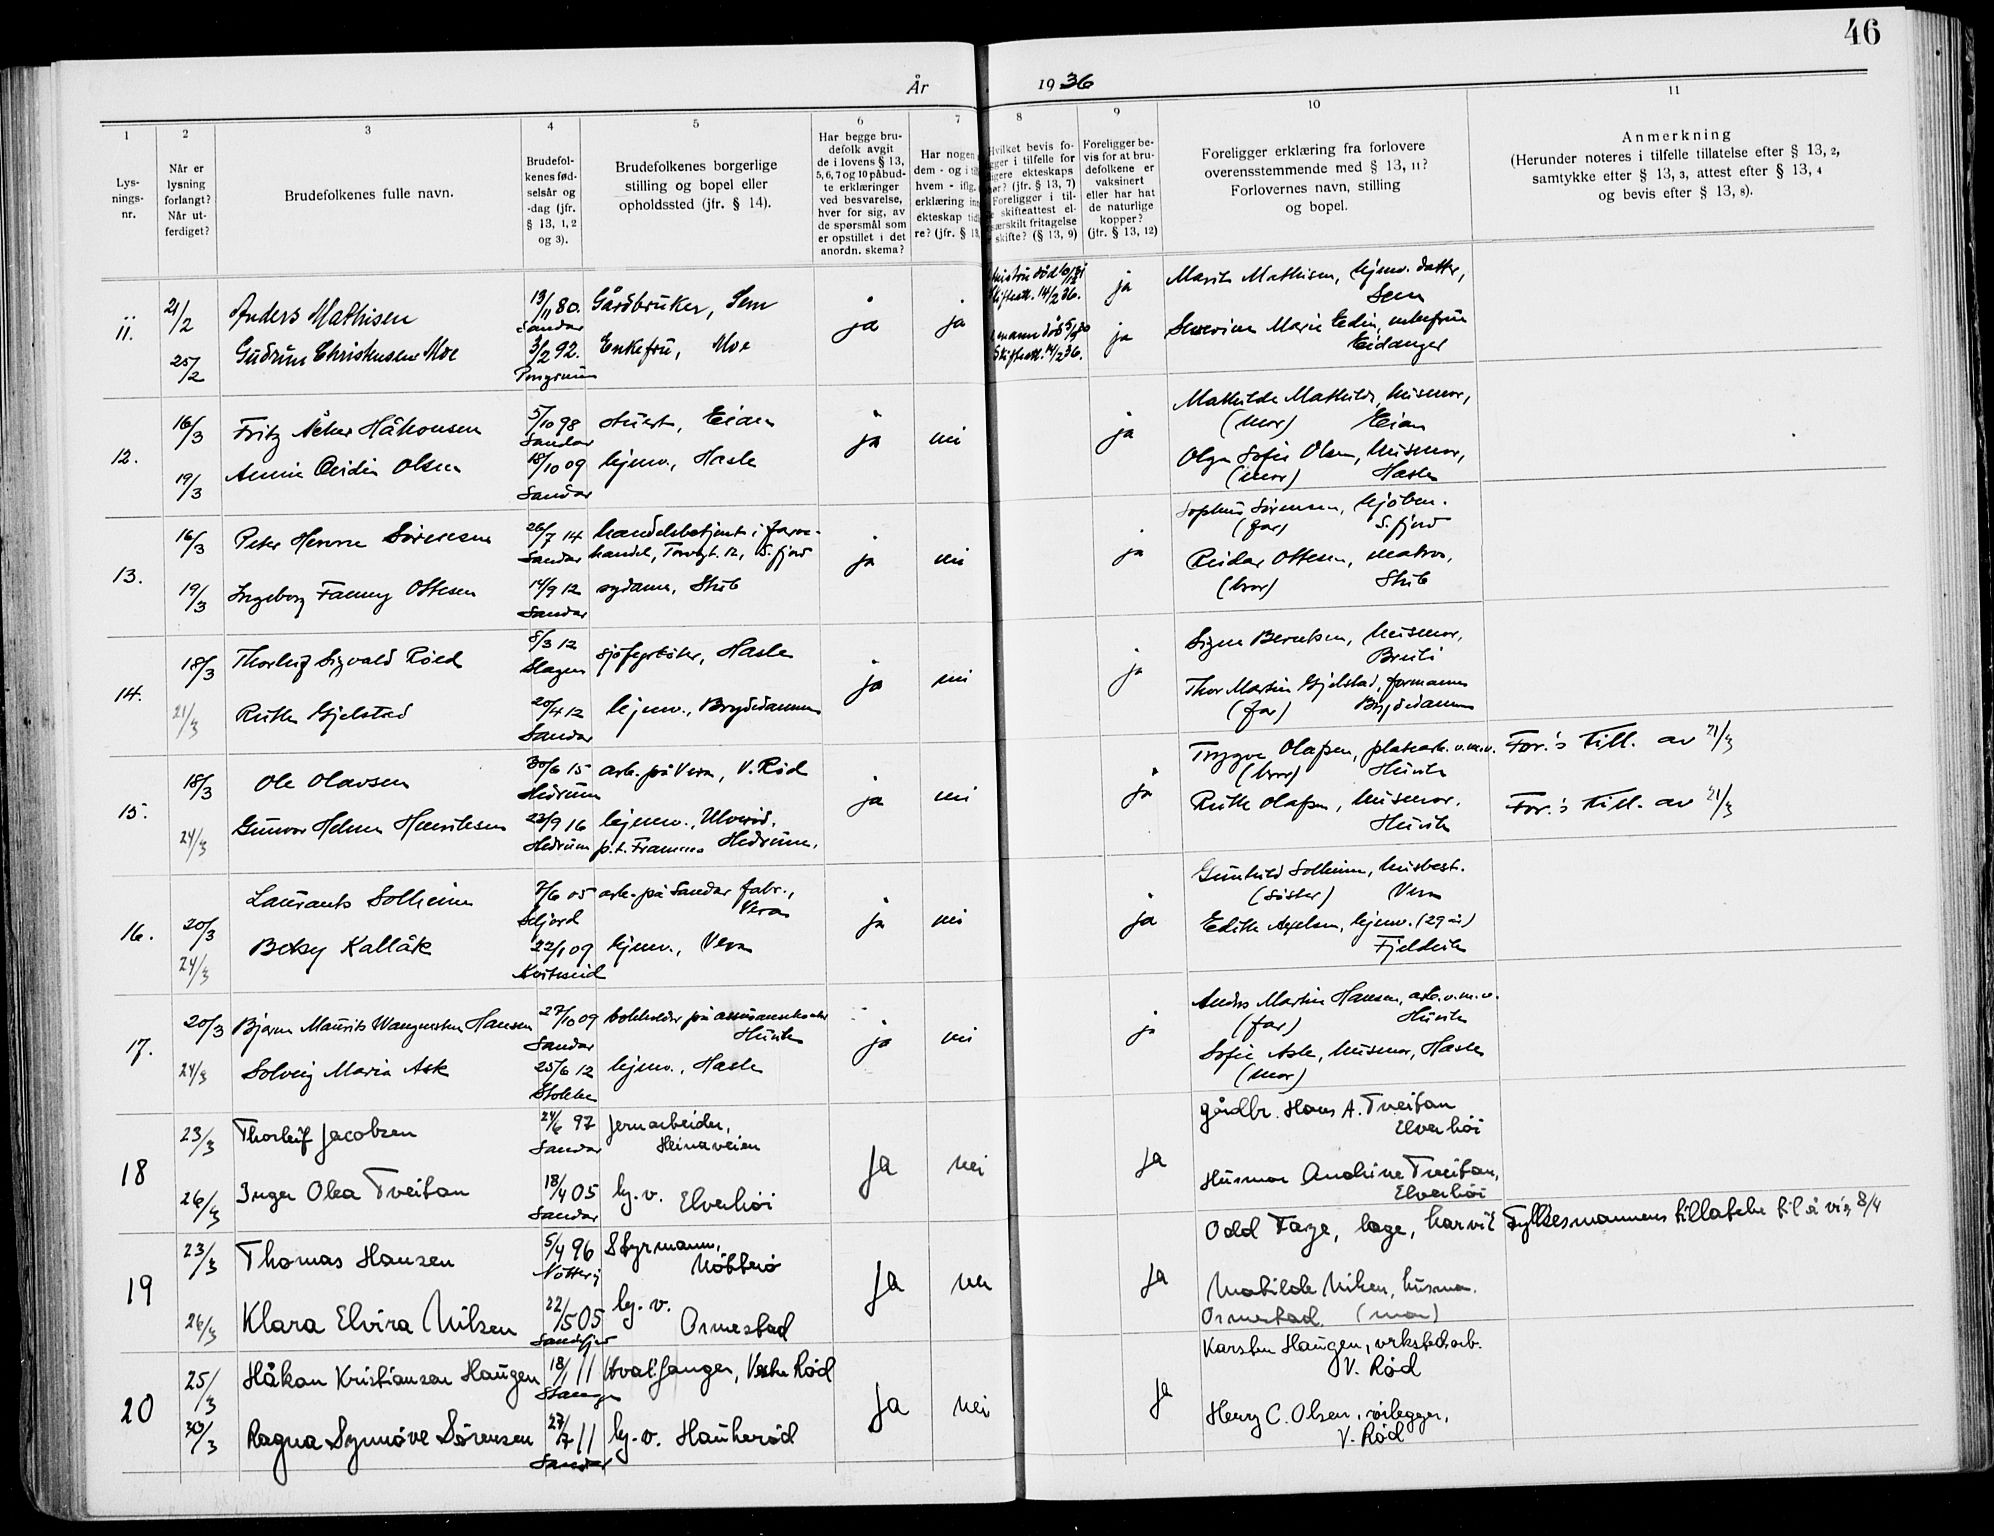 46
År 1936
1 2 3 4 5 6 7 8 9 10 11
Lys-
nings-
nr.
Når er
lysning
forlangt?
Når ut-
ferdiget?
Brudefolkenes fulle navn.
Brudefol-
kenes fød-
selsår og
-dag (jfr.
§ 13, 1, 2
og 3).
Brudefolkenes borgerlige
stilling og bopel eller
opholdssted (jfr. § 14).
Har begge bru-
defolk avgit
de i lovens § 13,
5, 6, 7 og 10 påbud-
te erklæringer
ved besvarelse,
hver for sig, av
de spørsmål som
er opstillet i det
anordn. skema?
Har nogen
dem - og i
hvem - iflg.
erklæring
ekteskap
re? (jfr. § 13,
Hvilket bevis fo-
i tilfelle for
ekteskaps
(jfr. § 13, 7)
Foreligger i til-
skifteattest el-
særskilt fritagelse
skifte? (§ 13, 9)
Foreligger be-
vis for at bru-
defolkene er
vaksinert
eller har hat
de naturlige
kopper?
(jfr. § 13, 12)
Foreligger erklæring fra forlovere
overensstemmende med § 13, 11?
Forlovernes navn, stilling
og bopel.
Anmerkning
(Herunder noteres i tilfelle tillatelse efter § 13, 2,
samtykke efter § 13, 3, attest efter § 13, 4
og bevis efter § 13, 8).
11. 21/2 Anders Mathisen 13/11 80. Sandar Gårdbruker, Sem ja ja 14/2 36. ja Marit Mathisen, hjemv. datter,
Sem
25/2 Gudrun Christensen Moe 3/2 92. Enkefru, Moe 14/2 36. ja Severine Marie Eidin, enkefrue
Eidanger
12. 16/3 Fritz Åker Håkonsen 5/10 98 Sandar Eian ja nei ja Mathilde Mathilde, husmor,
(mor) Eian
19/3 Annie Ovidia Olsen 18/10 09 Sandar hjemv., Hasle Olga Sofie Olsen, husmor,
(mor) Hasle
13. 16/3 Peter Sørensen 26/7 14 Sandar handelsbetjent i farve-
handel, Torvgt. 12, S.fjord ja nei ja Sophus Sørensen, kjøbm.
(far) S.fjord
19/3 Ingeborg Fanny Ottesen 14/9 12 Sandar sydame, Skib Reidar Ottesen, matros,
(bror) Skib
14. 18/3 Thorleif Sigvald Røed 8/3 12 Slagen Hasle ja nei ja Signe Berntsen, husmor,
21/3 Ruth Gjelstad 20/4 12 Sandar hjemv., Brydedammen Thor Martin Gjelstad, formann
(far) Brydedammen
15. 18/3 Ole Olavsen 30/6 15 Hedrum arb. på Vera, V. Rød ja nei ja Trygve Olafsen, platearb. v.m.v. For.'s till. av 21/3
(bror) Hunstk
24/3 Gunvor Helene Henriksen 23/9 16 Hedrum hjemv., Ulverød,
p.t. Framnes Hedrum. Ruth Olafsen, husmor. For.'s till. av 21/3
16. 20/3 Laurants Solheim 7/6 05 Seljord arb. på Sandar fabr.,
Vera ja nei ja Gunhild Solheim, husbest.
(søster) Vera
24/3 Betsy Kallåk 22/1 09 Kviteseid hjemv., Vera Edith Axelsen, hjemv. (29 år)
Fjeldvik
17. 20/3 Bjarne Maurits Wangensten Hansen 27/10 09 Sandar bokholder på assuransekontor ja nei ja Anders Martin Hansen, arb. v.m.v.
(far)
24/3 Solveig Maria Ask 25/6 12 Stokke hjemv., Hasle Sofie Ask, husmor, Hasle
(mor)
18 23/3 Thorleif Jacobsen 24/6 97 Sandar Jernarbeider,
Heimaveien Ja nei Ja gårdbr. Hans A. Tveitan
Elverhöi
26/3 Inger Olea Tveitan 18/4 05 Sandar hj. v. Elverhöi Husmor Andrine Tveitan,
Elverhöi
19 23/3 Thomas Hansen 5/4 96 Nötterö Styrmann,
Nötterö Ja nei Ja Odd Farge, lage, Larvik Fylkesmannens tillatelse til å vie 8/4
26/3 Klara Elvira Nilsen 22/5 05 Sandefjor hj. v.
Ormestad Matilde Nilsen, husmor.
Ormestad. (mor)
20 25/3 Håkon Kristiansen Haugen 18/1 11 Hvalfanger, Vestre Rød Ja nei Ja Karsten Haugen, verkstedarb.
V. Rød
30/3 Ragna Synnöve Sörensen 27/7 11 Sandar hj. v. Haukeröd Henry C. Olsen, rörlegger,
V. Rød